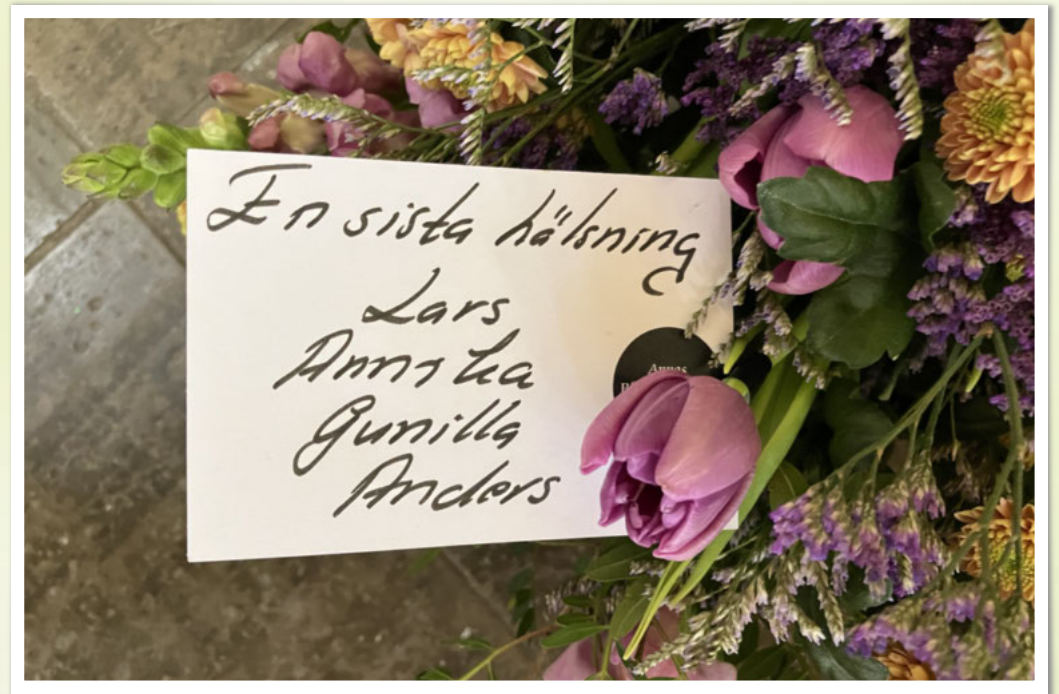 En sista hälsning
Lars
Annika
Gunilla
Anders
Annas